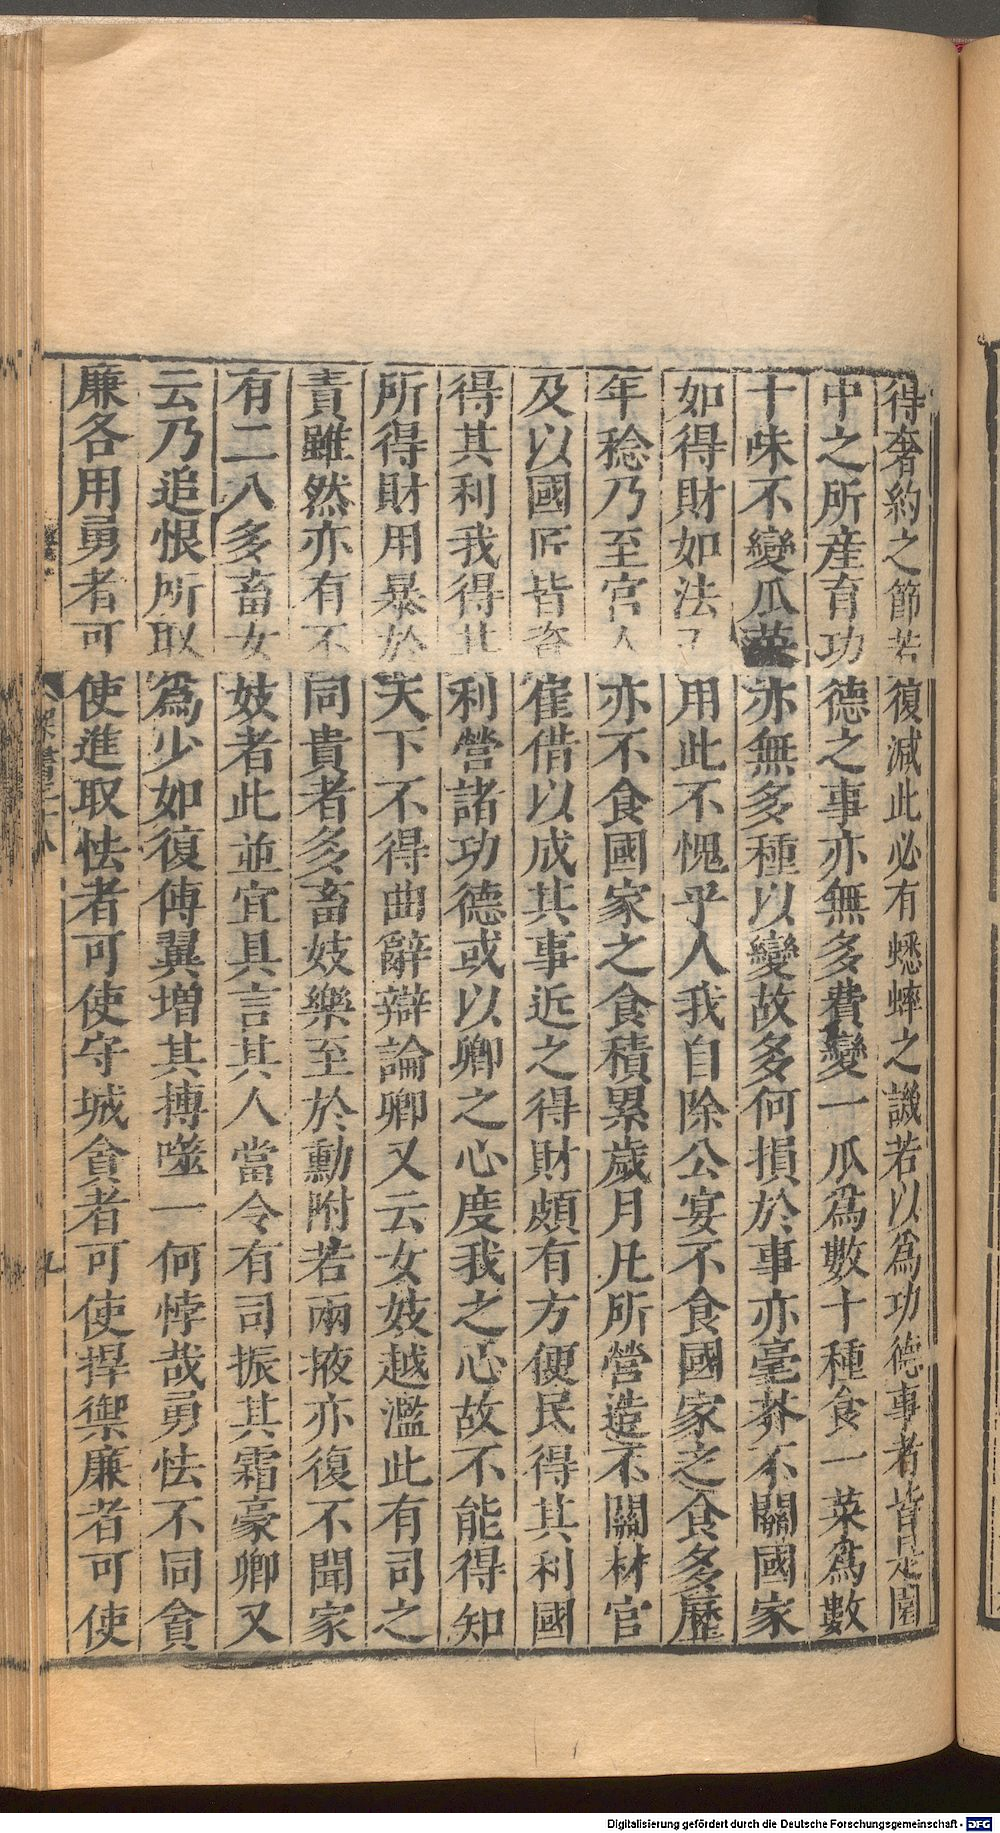 得奢約之節若復減此必有蟋蟀之譏若以為功德事者皆是園
中之所產育功德之事亦無多費變一瓜為數十種食一菜為數
十味不變瓜菜亦無多種以變故多何損於事亦毫芥不關國家
如得財如法而用此不愧乎人我自除公宴不食國家之食多歷
年稔乃至宮人亦不食國家之食積累歲月凡所營造不關材官
及以國匠皆資雇借以成其事近之得財頗有方便民得其利國
得其利我得其利營諸功德或以卿之心度我之心故不能得知
所得財用暴於天下不得曲辭辯論卿又云女妓越濫此有司之
責雖然亦有不同貴者多畜妓樂至於勳附若兩掖亦復不聞家
有二八多畜女妓者此並宜具言其人當令有司振其霜豪卿又
云乃追恨所取為少如復傅翼增其搏噬一何悖哉勇怯不同貪
廉各用勇者可使進取怯者可使守城貪者可使捍禦廉者可使
梁書三十八
九
Digitalisierung gefördert durch die Deutsche Forschungsgemeinschaft - DFG